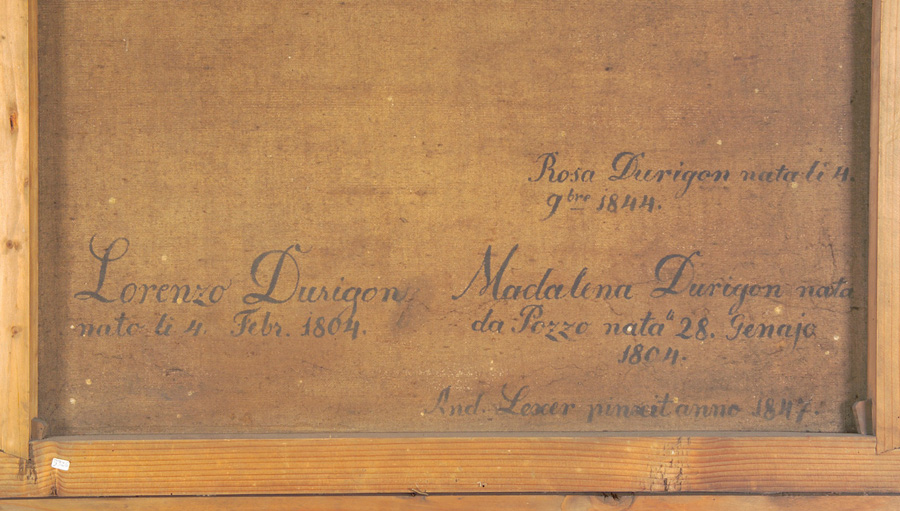 Rosa Durigon nata li 4.
9bre 1844.
Lorenzo Durigon
nato li 4. Febr. 1804.
Madalena Durigon nata
da Pozzo nata 28. Genajo
1804.
And. Lexer pinxit anno 1847.